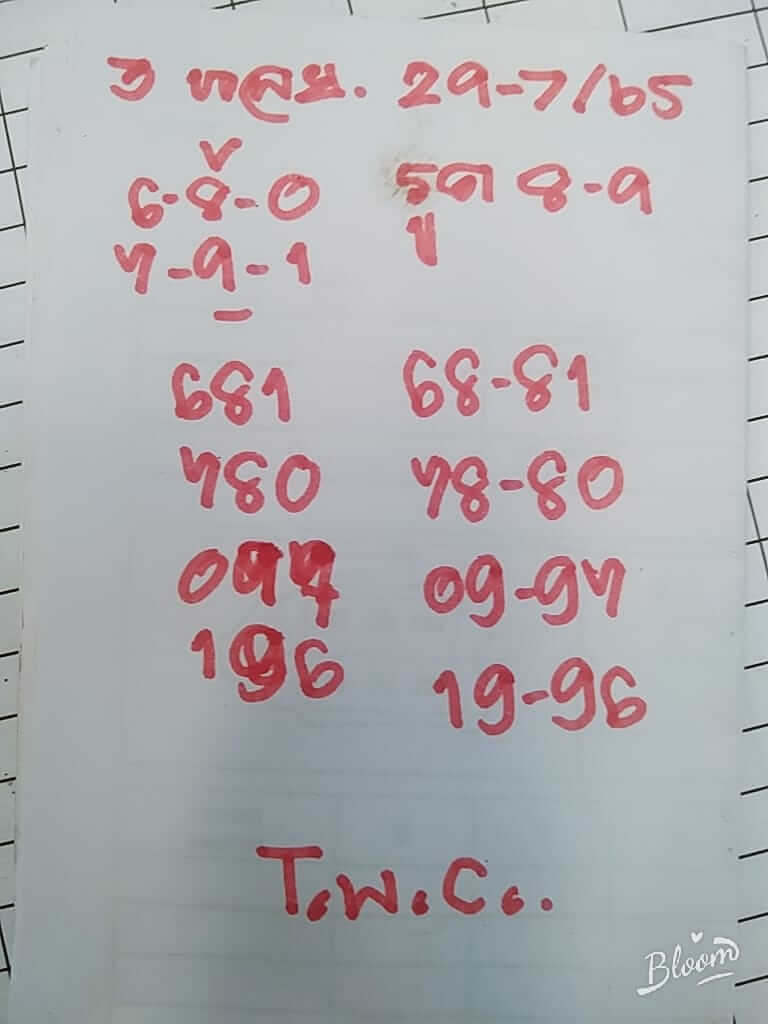 ว หลย. 29-7/65
6-8-0 รูด 8-9
7-9-1
681 68-81
780 78-80
097 09-97
196 19-96
T.พ.C..
Bloom